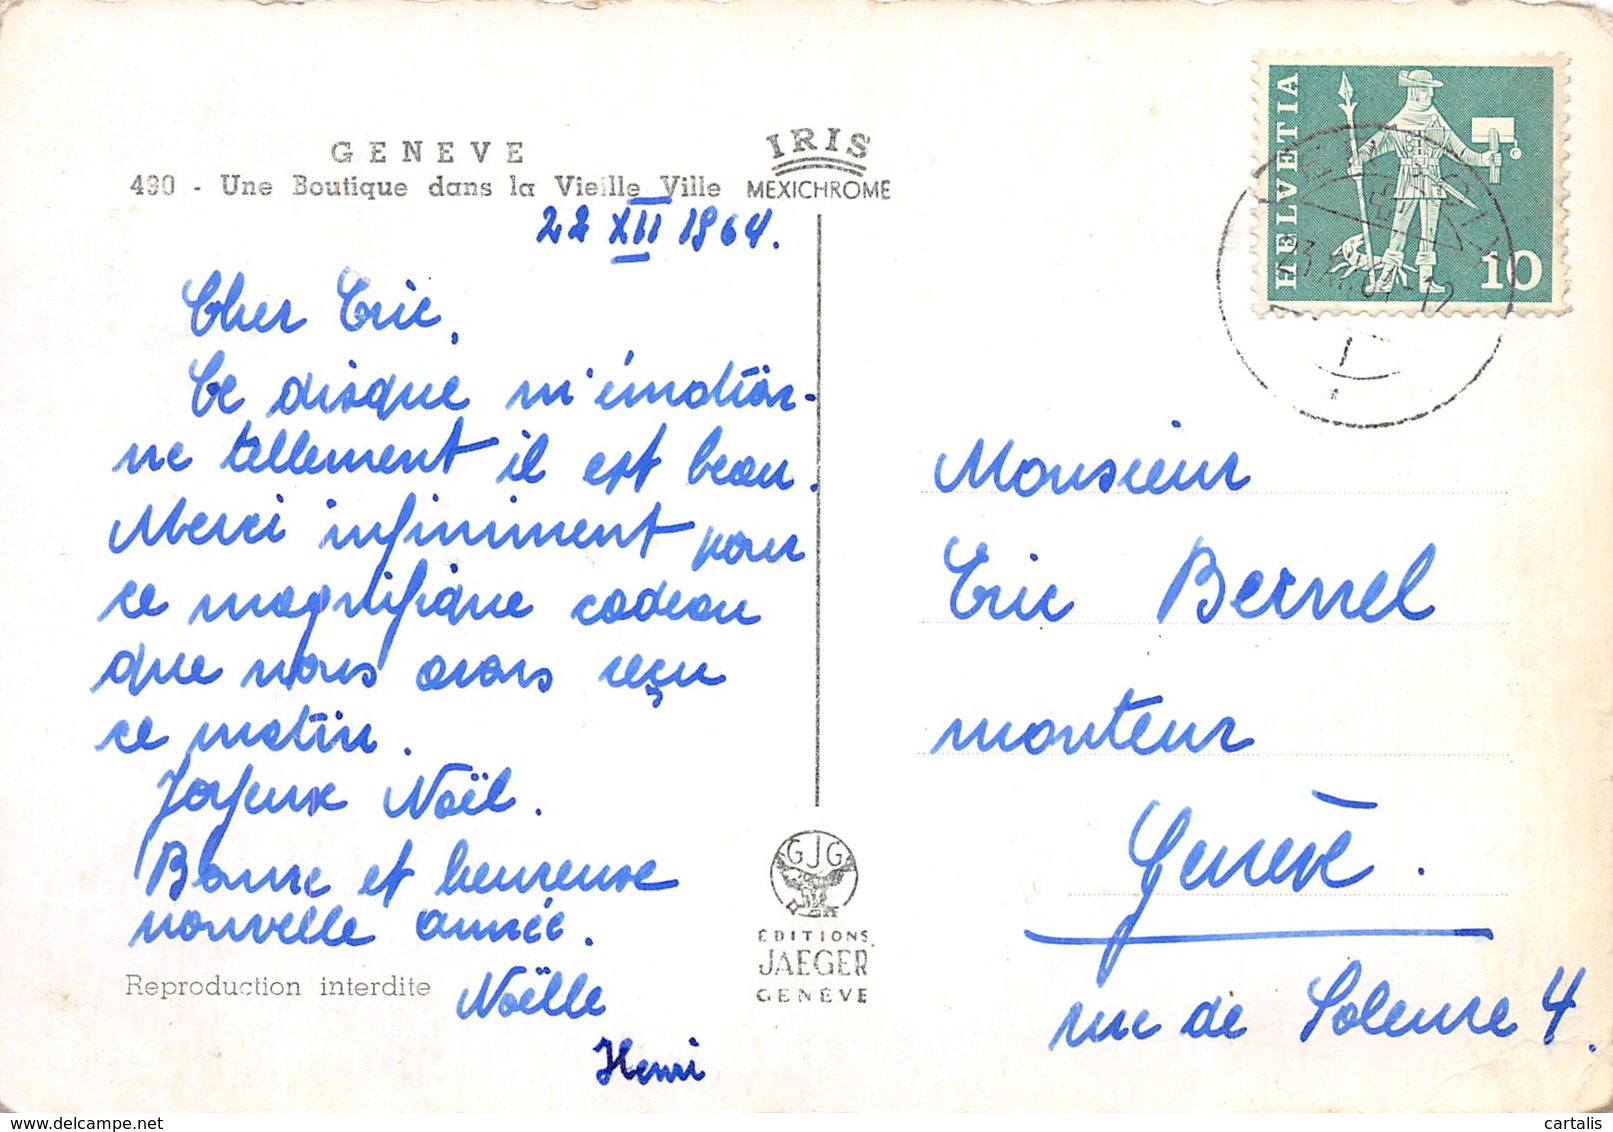 GENEVE
490 - Une Boutique dans la Vieille Ville
IRIS
MEXICHROME
22 XII 1964.
Cher Eric,
Ce disque m'émotion-
ne tellement il est beau.
Merci infiniment pour
ce magnifique cadeau
que nous avons reçu
ce matin.
Joyeux Noël.
Bonne et heureuse
nouvelle année.
Noëlle
Henri
Reproduction interdite
GJG
ÉDITIONS
JAEGER
GENÈVE
HELVETIA
10
23.XII.64-12
Monsieur
Eric Bernel
monteur
Genève.
rue de Soleure 4.
delcampe.net
cartalis